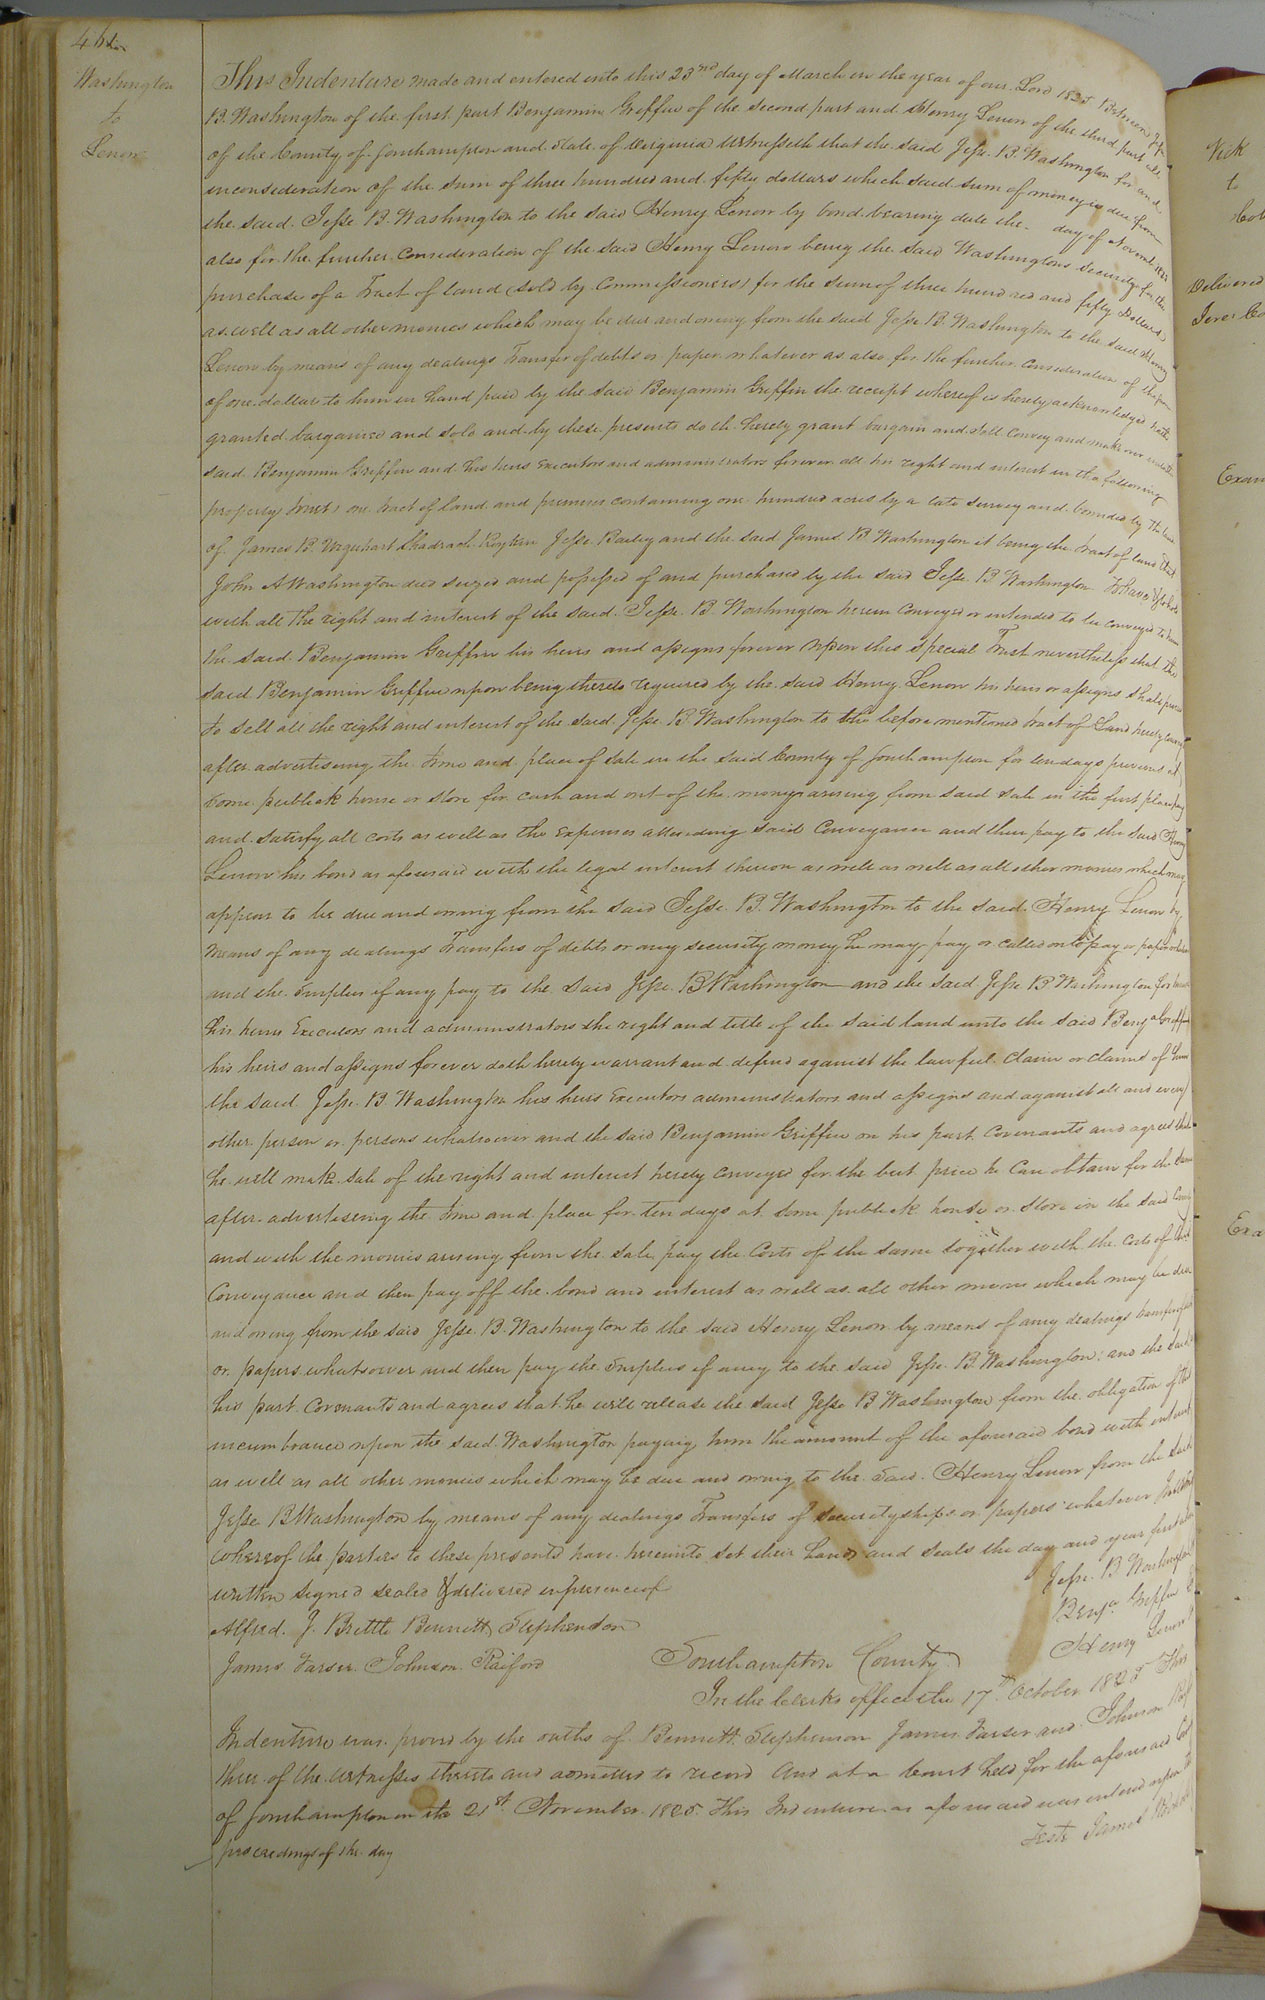 Washington
to
Lenow
This Indenture made and entered into this 23nd day of March in the year of our Lord 1825 Between Jesse
B. Washington of the first part Benjamin Griffin of the second part and Henry Lenow of the third part all
of the County of Southampton and State of Virginia Witnesseth that the said Jesse B. Washington for and
inconsideration of the sum of three hundred and fifty dollars which said sum of money is due from
the said Jesse B. Washington to the said Henry Lenow by bond bearing date the day of November
also for the further consideration of the said Henry Lenow being the said Washingtons security for the
purchase of a Tract of land (sold by Commissioners) for the sum of three hundred and fifty Dollars
as well as all other monies which may be due and owing from the said Jesse B. Washington to the said Henry
Lenow by means of any dealings Transfer of debts or paper whatever as also for the further consideration of the sum
of one dollar to him in hand paid by the said Benjamin Griffin the receipt whereof is hereby acknowledged hath
granted bargained and sold and by these presents doth hereby grant bargain and sell convey and make over unto the
said Benjamin Griffin and his heirs Executors and administrators forever all his right and interest in the following
property towit, one tract of land and premises containing one hundred acres by a late survey and bounded by the lands
of James B. Urquhart Shadrach Boykin Jesse Bailey and the said James B Washington it being the tract of land that
John A Washington died seized and possessed of and purchased by the said Jesse B Washington To have & to hold
with all the right and interest of the said Jesse B. Washington herein conveyed or intended to be conveyed to him
the said Benjamin Griffin his heirs and assigns forever Upon this special Trust nevertheless that the
said Benjamin Griffin upon being thereto required by the said Henry Lenow his heirs or assigns shall proceed
to sell all the right and interest of the said Jesse B. Washington to the before mentioned tract of Land hereby conveyed
after advertiseing the time and place of sale in the said County of Southampton for ten days previous at
some publick house or store for cash and out of the money arising from said sale in the first place pay
and satisfy all costs as well as the expenses attending said Conveyance and then pay to the said Henry
Lenow his bond as aforesaid with the legal interest thereon as well as well as all other monies which may
appear to be due and owing from the said Jesse B. Washington to the said Henry Lenow by
means of any dealings Transfers of debts or any security money he may pay or called on to pay or paper
and the Surplus if any pay to the said Jesse B Washington and the said Jesse B Washington for himself
his heirs Executors and administrators the right and title of the said land unto the said Benja Griffin
his heirs and assigns forever doth hereby warrant and defend against the lawful claim or claims of him
the said Jesse B. Washington his heirs Executors administrators and assigns and against all and every
other person or persons whatsoever and the said Benjamin Griffin on his part Covenants and agrees that
he will make sale of the right and interest hereby conveyed for the best price he can obtain for the same
after advertiseing the time and place for ten days at some publick house or store in the said County
and with the monies arising from the sale pay the Costs of the same together with the costs of this
Conveyance and then pay off the bond and interest as well as all other monies which may be due
and owing from the said Jesse B. Washington to the said Henry Lenow by means of any dealings transfers
or papers whatsoever and then pay the Surplus if any to the said Jesse B. Washington; and the said
his part Covenants and agrees that he will release the said Jesse B Washington from the obligation of this
incumbrance upon the said Washington paying him the amount of the aforesaid bond with interest
as well as all other monies which may be due and owing to the said Henry Lenow from the said
Jesse B Washington by means of any dealings Transfers of securityships or papers whatever In testimony
whereof the parties to these presents have hereunto set their hands and seals the day and year first above
written signed sealed & delivered in presence of
Jesse B Washington
Alfred J. Brittle Bennett Stephenson
Benja Griffin
James Farser Johnson Raiford
Henry Lenow
Southampton County
In the Clerks office the 17th October 1825 This
Indenture was proved by the oaths of Bennett Stephenson James Farser and Johnson
three of the witnesses thereto and admitted to record And at a Court held for the aforesaid
of Southampton on the 21st November 1825 This Indenture as aforesaid was entered upon the
proceedings of the day
Teste James
Vick
to
Delivered
Exam